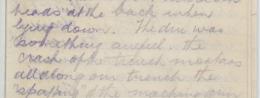 heads at the back when
lying down. The din was
something awful, the
crash of the trench mortars
all along our trench the
of the machine gun